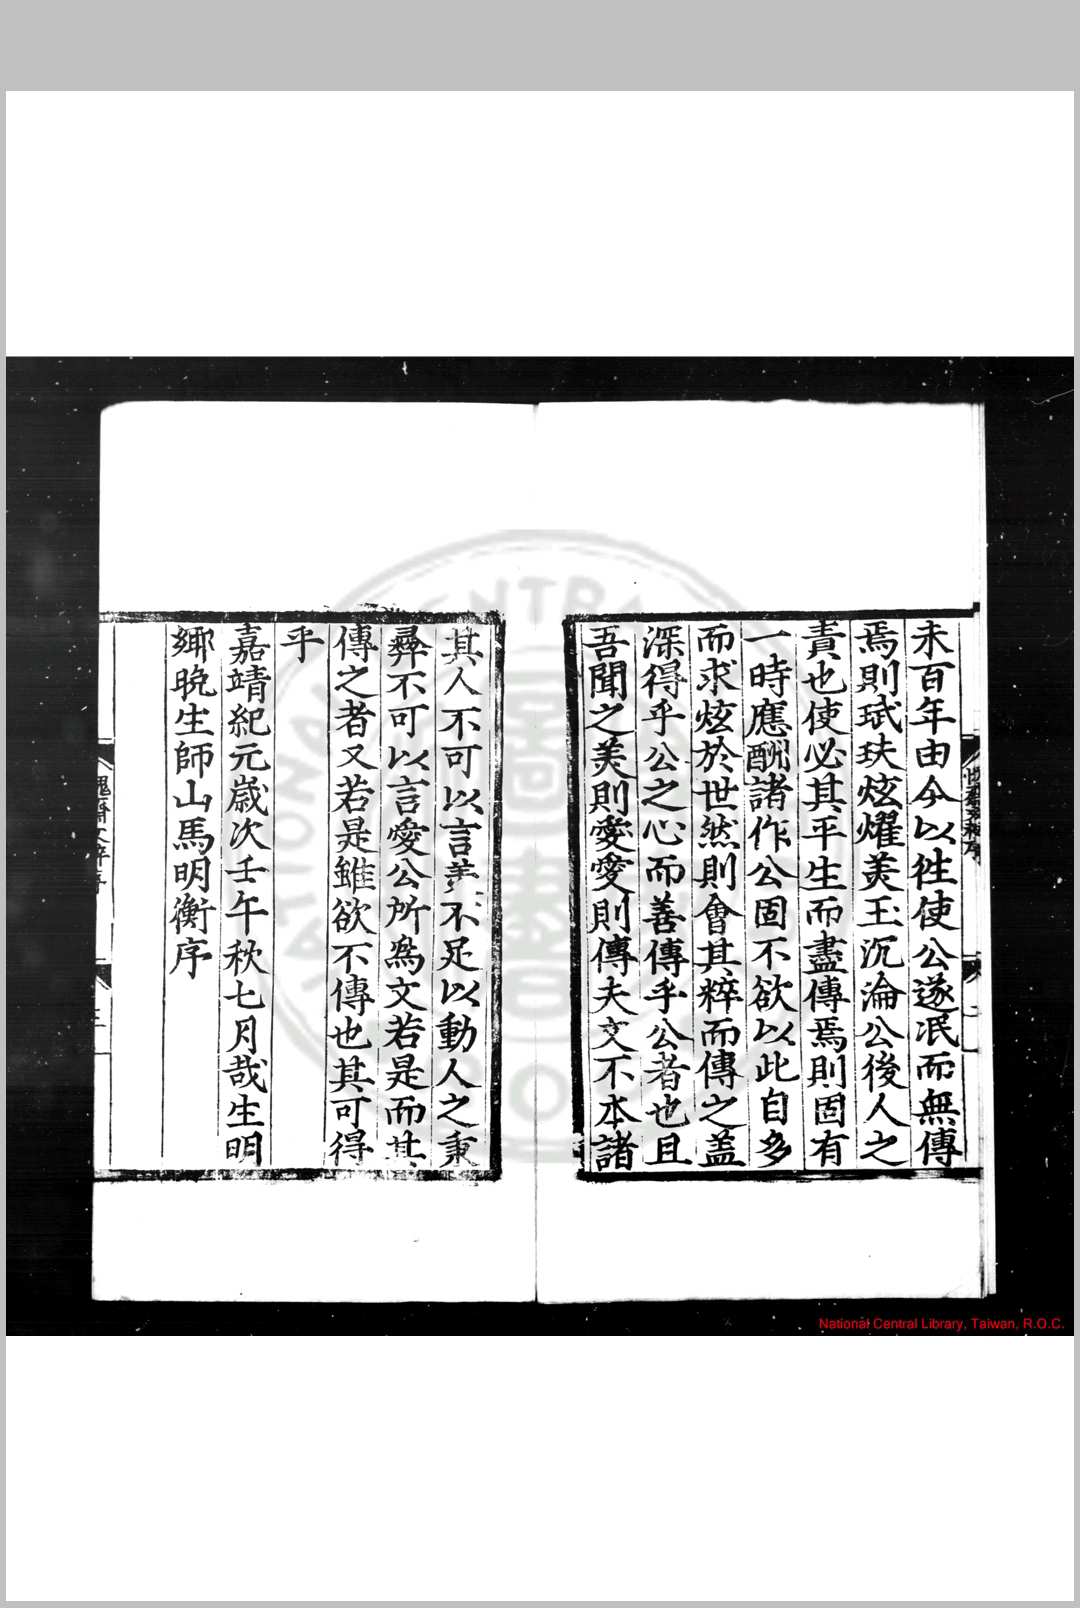 未百年由今以徃使公遂泯而無傳
焉則珷玞炫燿美玉沉淪公後人之
責也使必其平生而盡傳焉則固有
一時應酬諸作公固不欲以此自多
而求炫於世然則會其粹而傳之盖
深得乎公之心而善傳乎公者也且
吾聞之美則愛愛則傳夫文不本諸
其人不可以言美不足以動人之秉
彞不可以言愛公所爲文若是而其
傳之者又若是雖欲不傳也其可得
乎
嘉靖紀元歲次壬午秋七月哉生明
鄉晩生師山馬明衡序
愧齋文粹序
三
National Central Library, Taiwan, R.O.C.